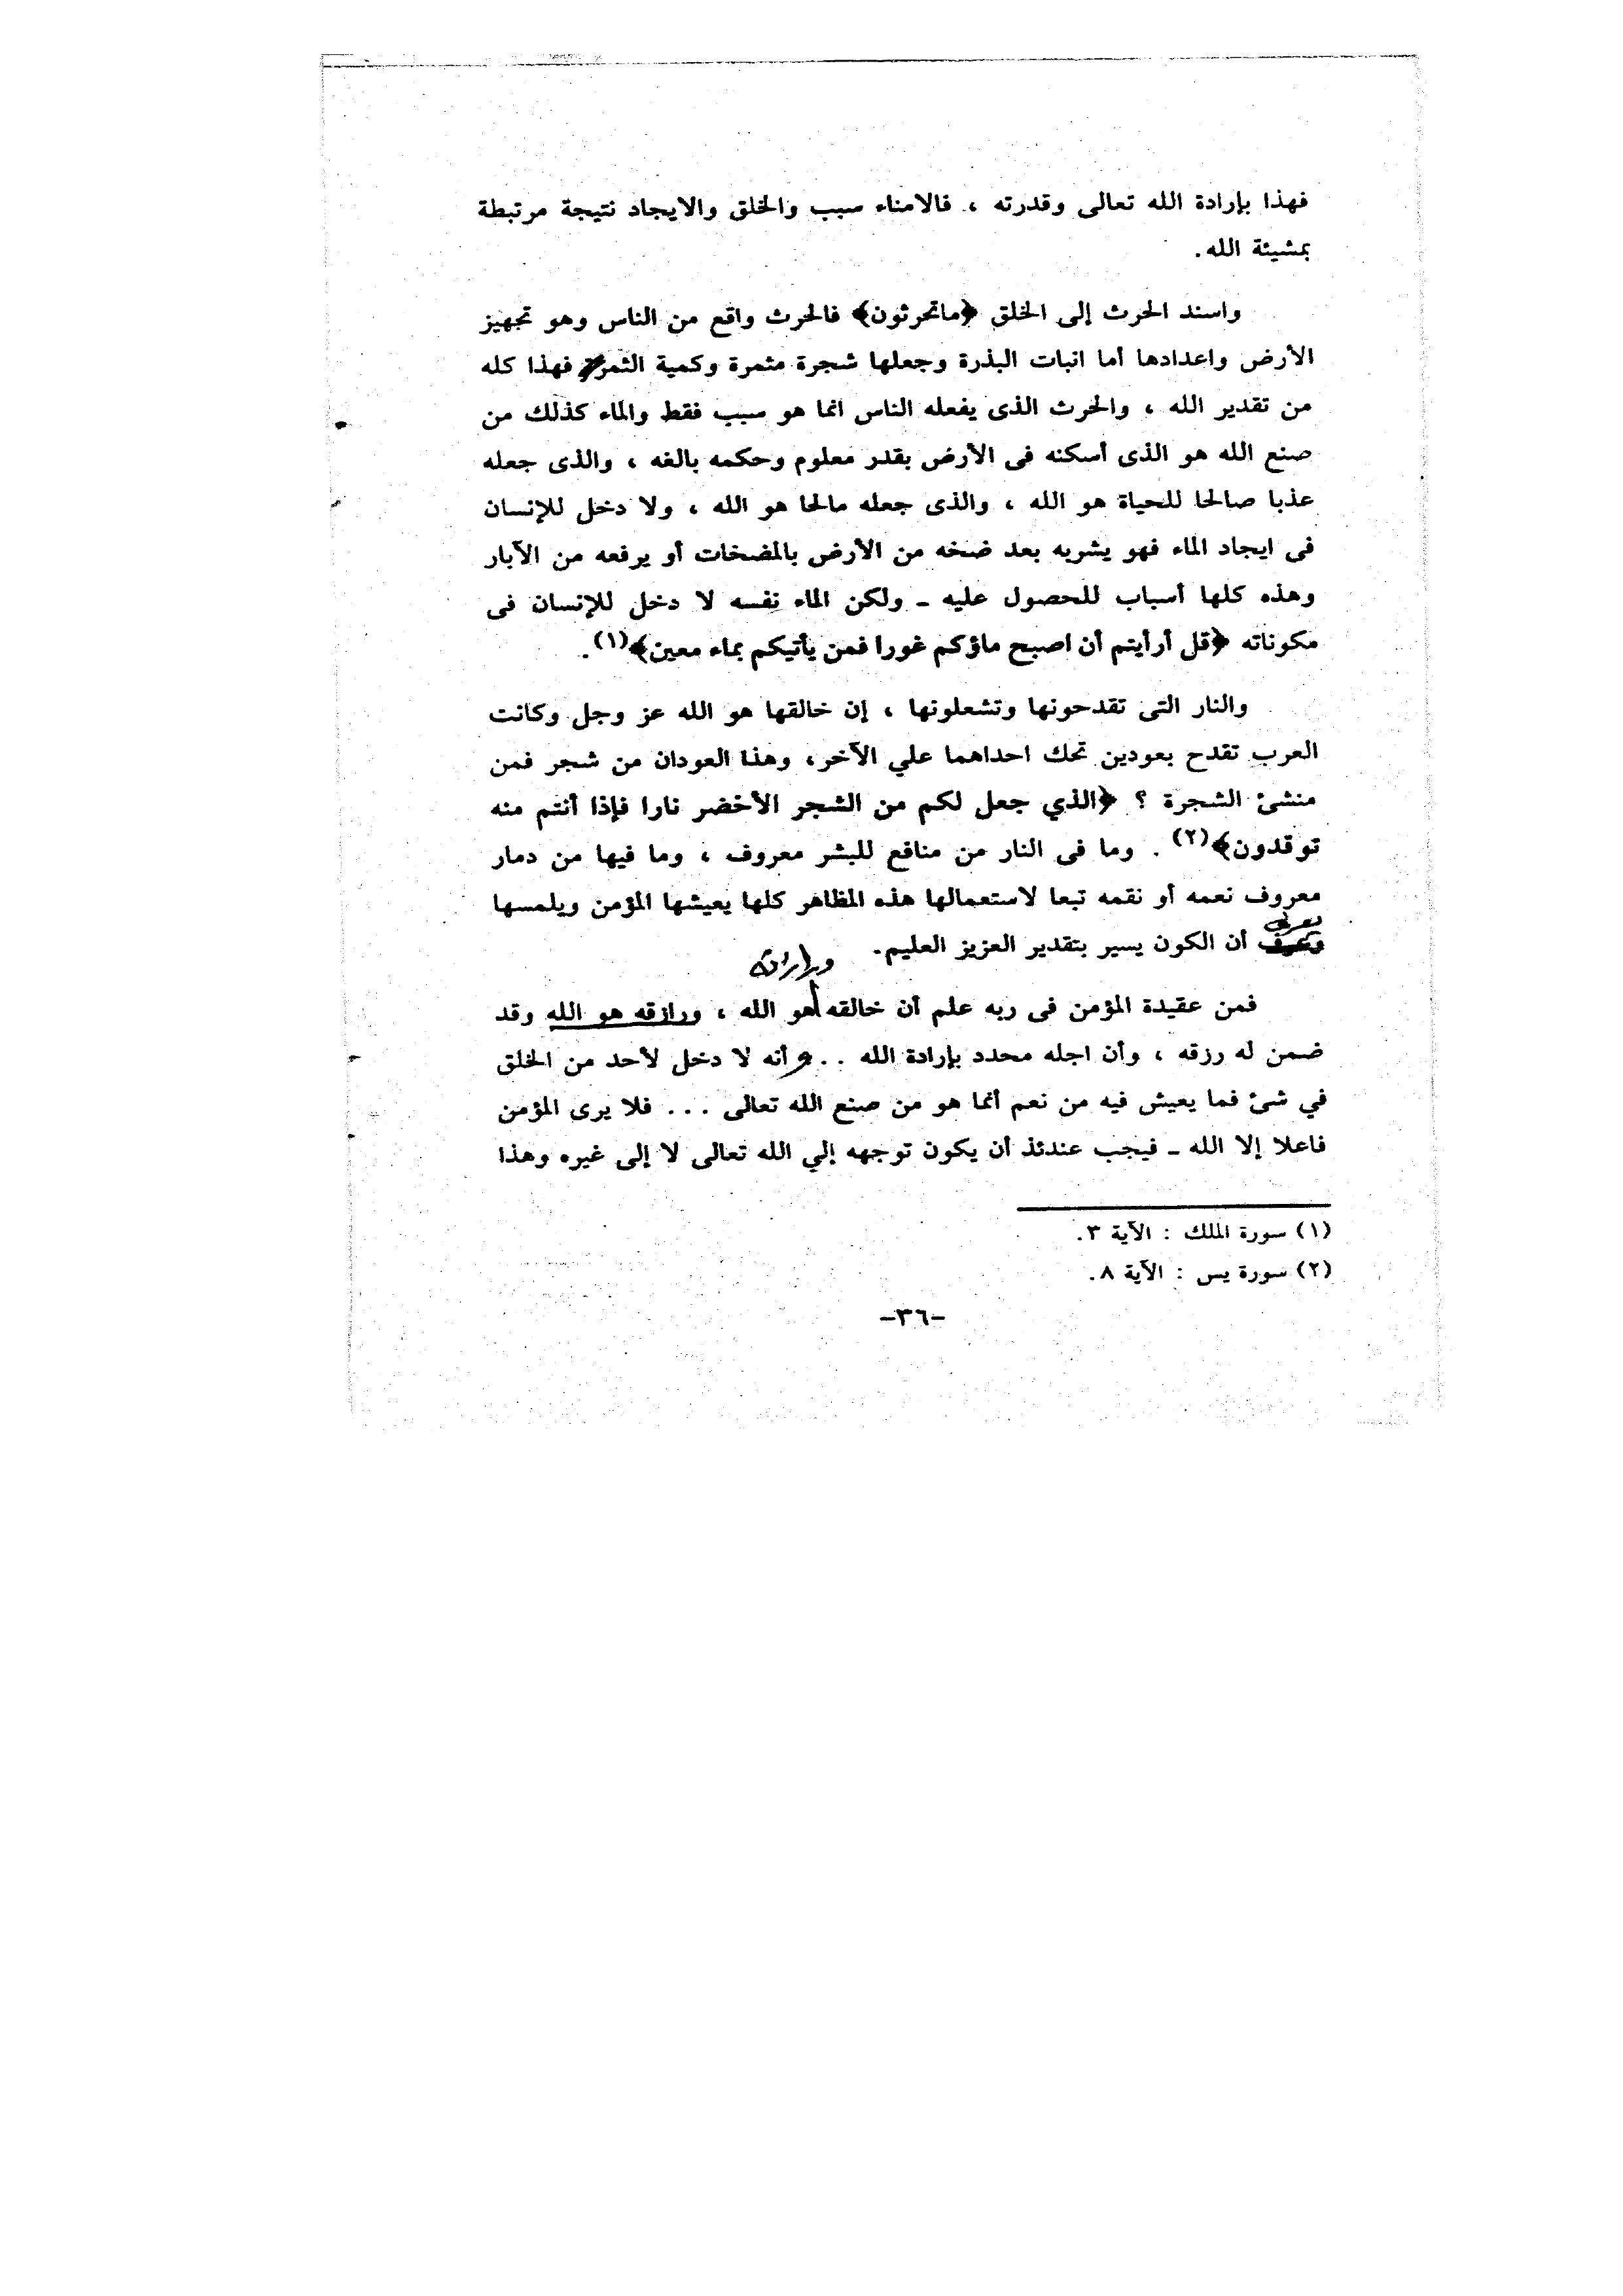 فهذا بإرادة الله تعالى وقدرته ، فالامناء سبب والخلق والايجاد نتيجة مرتبطة
بمشيئة الله.
واسند الحرث إلى الخلق ﴿ماتحرثون﴾ فالحرث واقع من الناس وهو تجهيز
الأرض واعدادها أما انبات البذرة وجعلها شجرة مثمرة وكمية الثمرة فهذا كله
من تقدير الله ، والحرث الذى يفعله الناس انما هو سبب فقط والماء كذلك من
صنع الله هو الذى أسكنه فى الأرض بقدر معلوم وحكمه بالغه ، والذى جعله
عذبا صالحا للحياة هو الله ، والذى جعله مالحا هو الله ، ولا دخل للإنسان
فى ايجاد الماء فهو يشربه بعد ضخه من الأرض بالمضخات أو يرفعه من الآبار
وهذه كلها أسباب للحصول عليه ـ ولكن الماء نفسه لا دخل للإنسان فى
مكوناته ﴿قل أرأيتم أن اصبح ماؤكم غورا فمن يأتيكم بماء معين﴾(١).
والنار التى تقدحونها وتشعلونها ، إن خالقها هو الله عز وجل وكانت
العرب تقدح بعودين تحك احداهما علي الآخر، وهذا العودان من شجر فمن
منشئ الشجرة ؟ ﴿الذي جعل لكم من الشجر الأخضر نارا فإذا أنتم منه
توقدون﴾(٢) . وما فى النار من منافع للبشر معروف ، وما فيها من دمار
معروف نعمه أو نقمه تبعا لاستعمالها هذه المظاهر كلها يعيشها المؤمن ويلمسها
يعرف
أن الكون يسير بتقدير العزيز العليم.
وإرادته
فمن عقيدة المؤمن فى ربه علم أن خالقه هو الله ، ورازقه هو الله وقد
ضمن له رزقه ، وأن اجله محدد بإرادة الله . . وأنه لا دخل لأحد من الخلق
في شئ فما يعيش فيه من نعم أنما هو من صنع الله تعالى . . . فلا يرى المؤمن
فاعلا إلا الله ـ فيجب عندئذ أن يكون توجهه إلي الله تعالى لا إلى غيره وهذا
(١) سورة الملك : الآية ٣.
(٢) سورة يس : الآية ٨.
-٣٦-